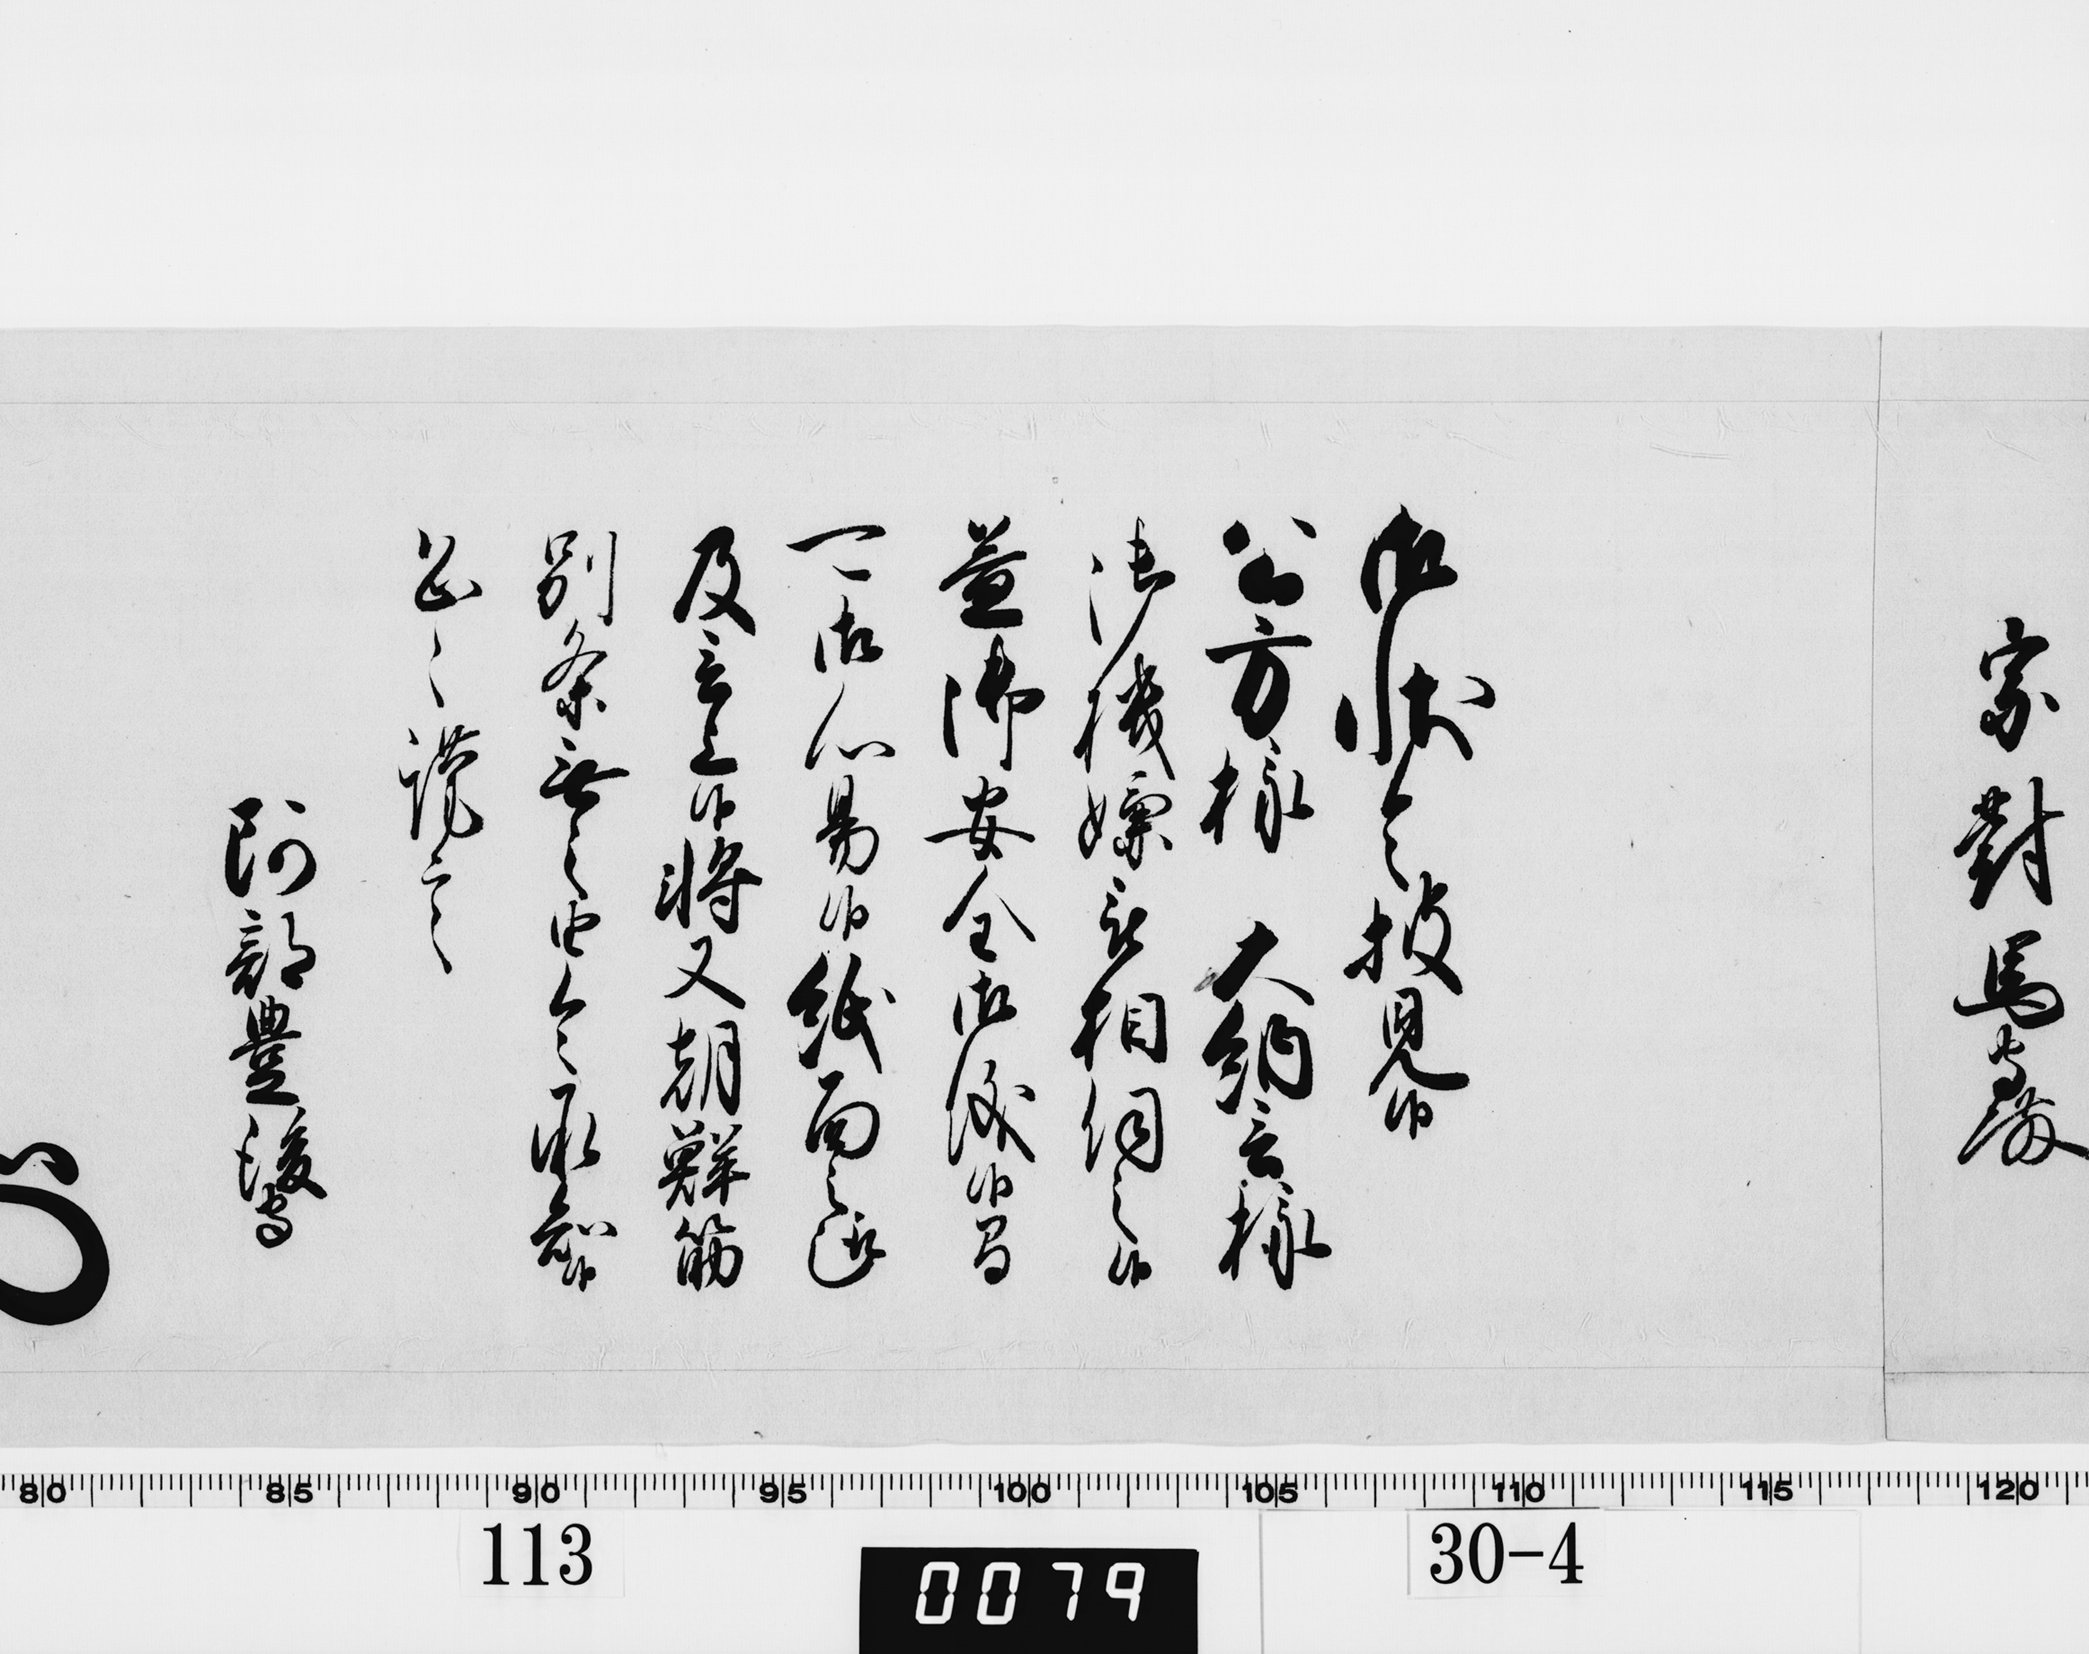 宗對馬守殿
御状令披見候
公方様 大納言様
御機嫌被相伺之候
益御安全御儀候間
可御心易候紙面之趣
及言上候将又朝鮮筋
別条無之由令承知候
恐々謹言
阿部豊後守
80 85 90 95 100 105 110 115 120
113
0079
30-4